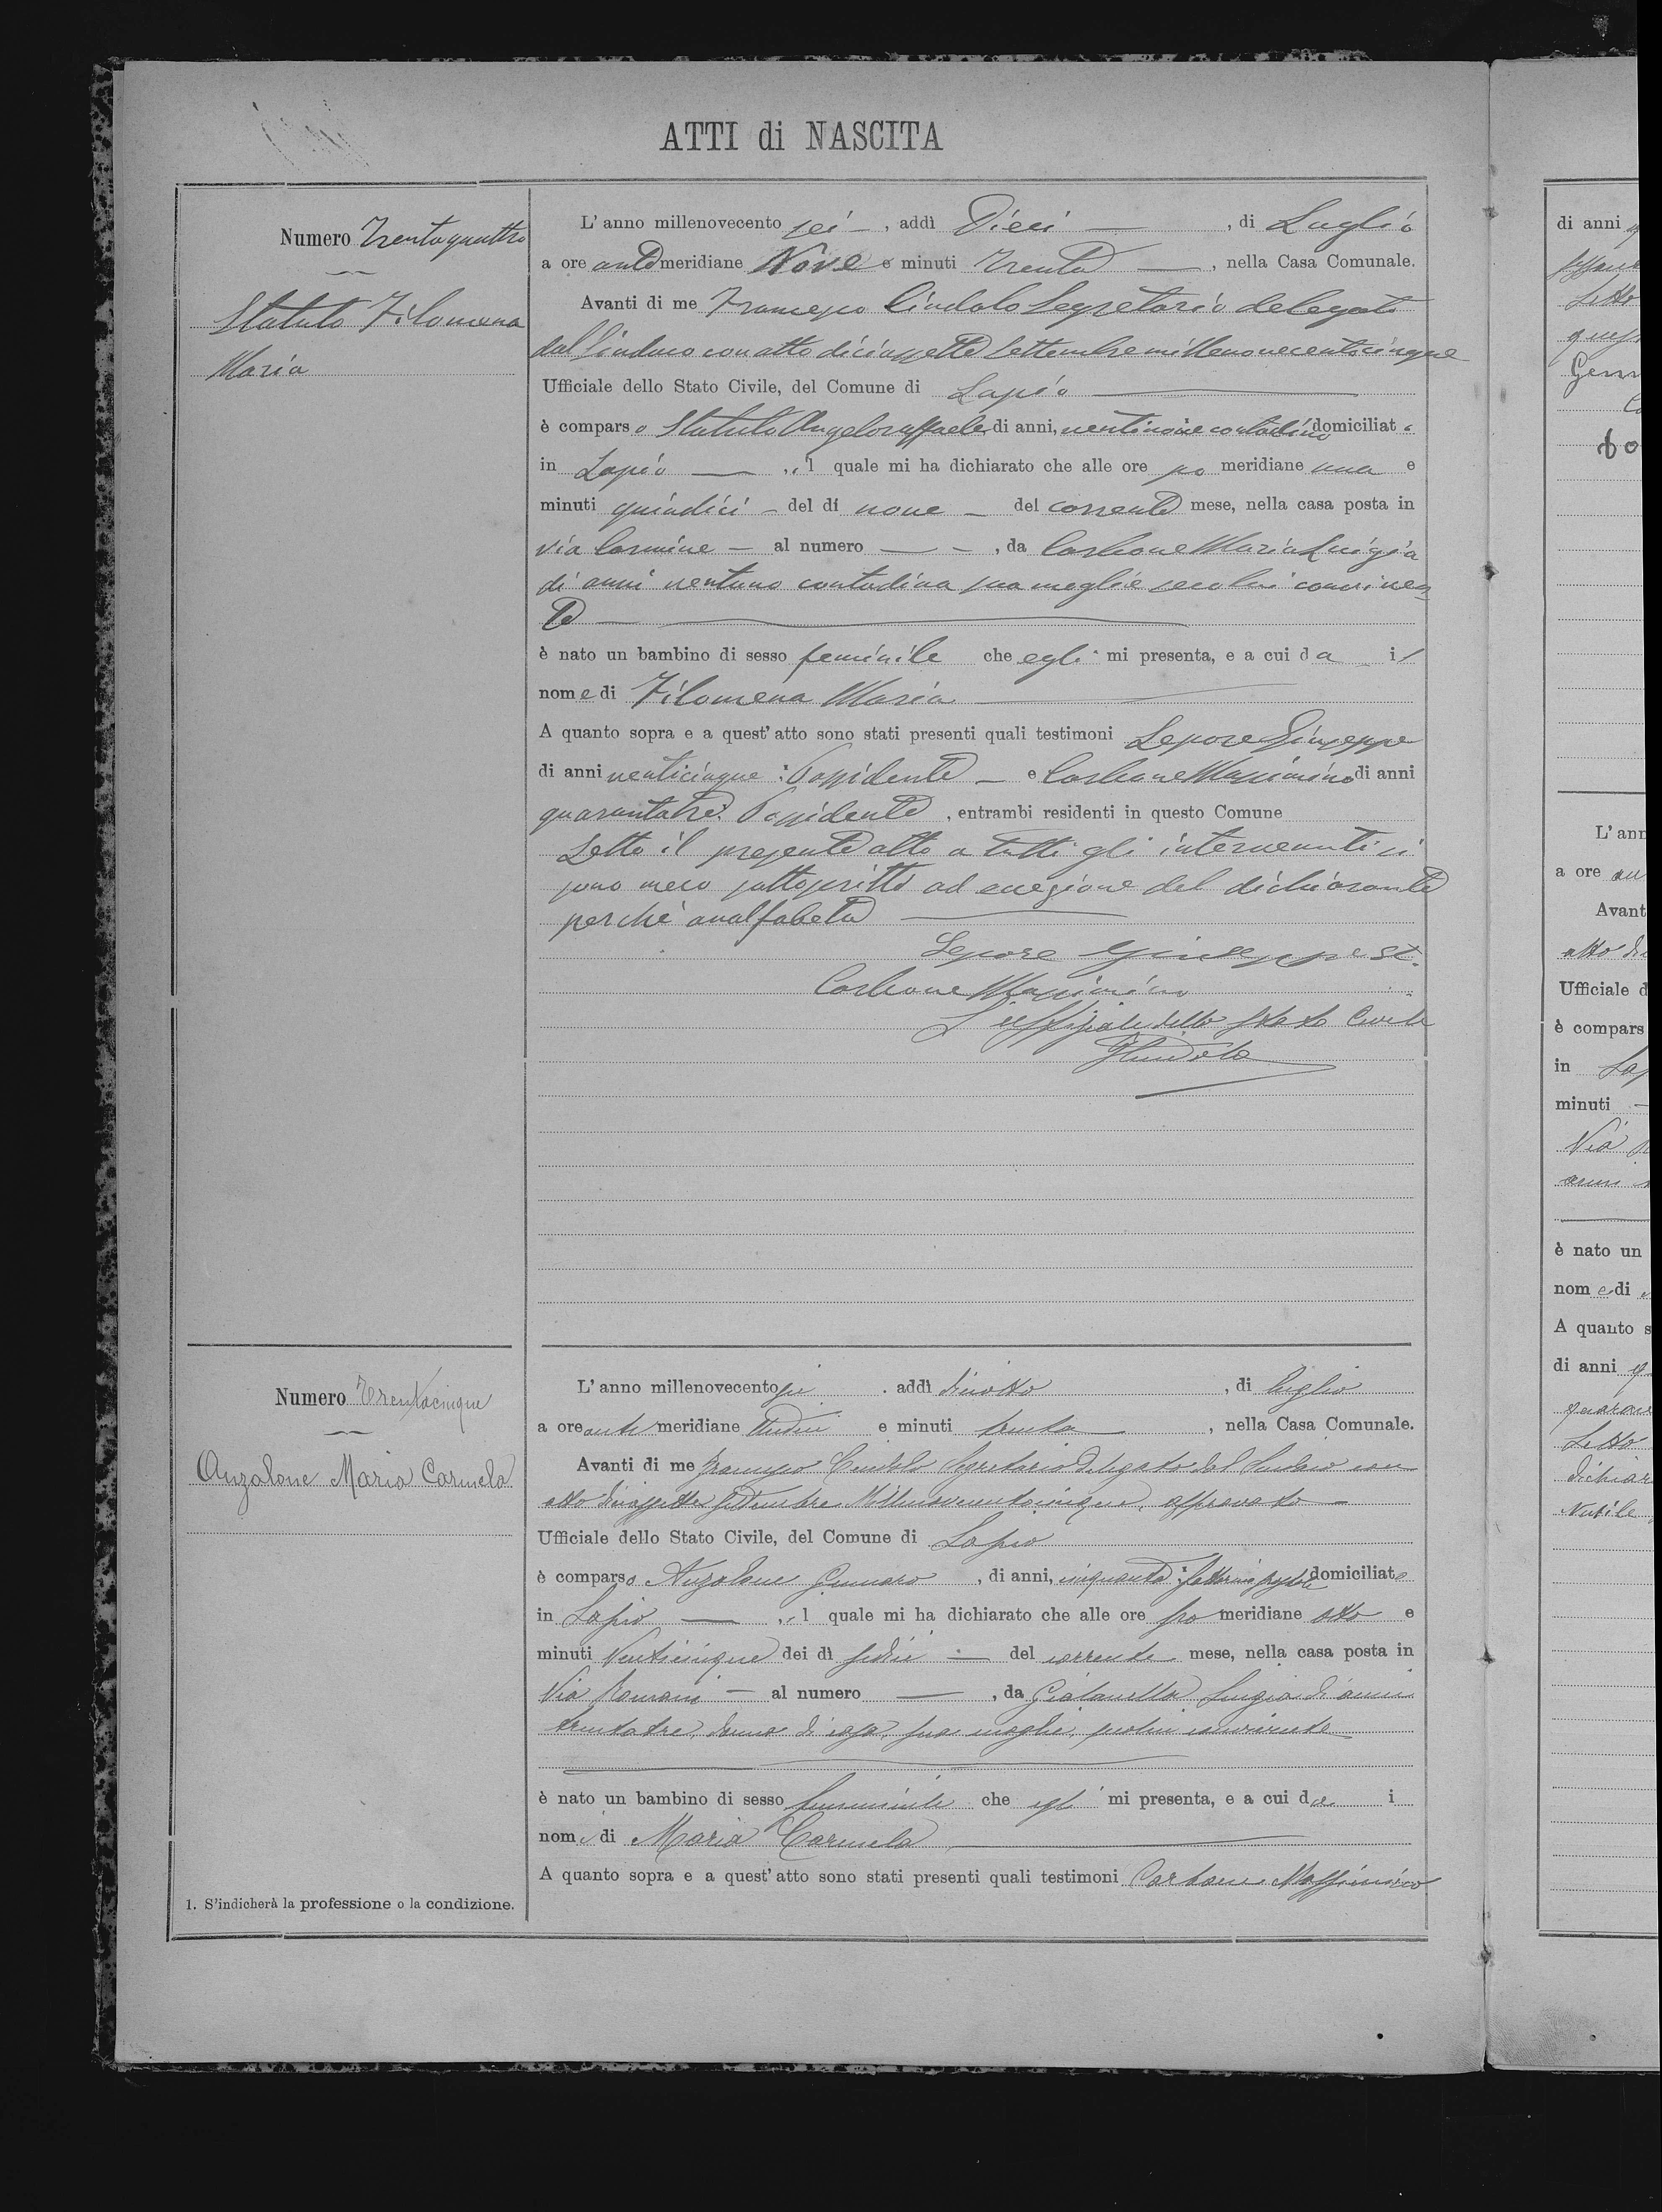 ATTI di NASCITA
Numero Trentaquattro
Statuto Filomena
Maria
L' anno millenovecento sei —, addì Dieci —, di Luglio
a ore antemeridiane Nove e minuti Trenta —, nella Casa Comunale.
Avanti di me Francesco Cindolo Segretario delegato
dal Sindaco con atto diciassette Settembre millenovecentocinque
Ufficiale dello Stato Civile, del Comune di Lapio
è comparso Statuto Angeloraffaele di anni, ventinove contadino domiciliato
in Lapio —, il quale mi ha dichiarato che alle ore po meridiane una e
minuti quindici — del dì nove — del corrente mese, nella casa posta in
via Carmine — al numero — , da Carbone Maria Luigia
di anni ventuno contadina sua moglie seco lui conviven
te
è nato un bambino di sesso feminile che egli mi presenta, e a cui da il
nome di Filomena Maria
A quanto sopra e a quest' atto sono stati presenti quali testimoni Lepore Giuseppe
di anni venticinque: Possidente — e Carbone Massimino di anni
quarantatre: Possidente, entrambi residenti in questo Comune
Letto il presente atto a tutti gli intervenuti si
sono meco sottoscritti ad eccezione del dichiarante
perchè analfabeta
Lepore Giuseppe
Carbone Massimino
L'uffiziale dello Stato Civile
Numero Trentacinque
Anzalone Maria Carmela
L' anno millenovecentosei, addì diciotto, di luglio
a ore anti meridiane undici e minuti trenta —, nella Casa Comunale.
Avanti di me Francesco Cindolo Segretario delegato dal Sindaco con
atto diciassette Settembre Millenovecentocinque, approvato —
Ufficiale dello Stato Civile, del Comune di Lapio
è comparso Anzalone Gennaro, di anni, cinquanta: domiciliato
in Lapio —, il quale mi ha dichiarato che alle ore po meridiane otto e
minuti Venticinque dei dì sedici — del corrente mese, nella casa posta in
Via Romani — al numero — , da Luigia di anni
trentatre, donna di casa, sua moglie, convivente
è nato un bambino di sesso femminile che egli mi presenta, e a cui da i
nome di Maria Carmela
A quanto sopra e a quest' atto sono stati presenti quali testimoni Carbone Massimino
1. S'indicherà la professione o la condizione.
di anni
Letto
L' ann
a ore
Avant
Ufficiale d
è compars
in
minuti
Via
anni
è nato un
nome di
A quanto s
di anni
Letto